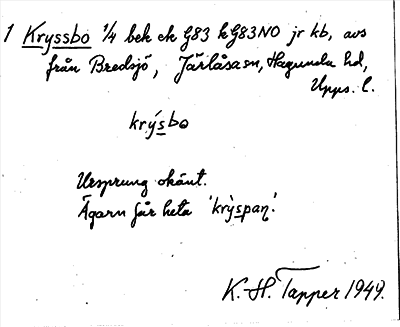 1 Kryssbo 1/4 bek ek G83 k G83NO jr kb, avs
från Bredsjö, Järlåsa sn, Hagunda hd,
Upps. l.
krýsbo
Ursprung okänt.
Ägarn får heta 'krỳspaṇ'.
K.-H. Tapper 1949.